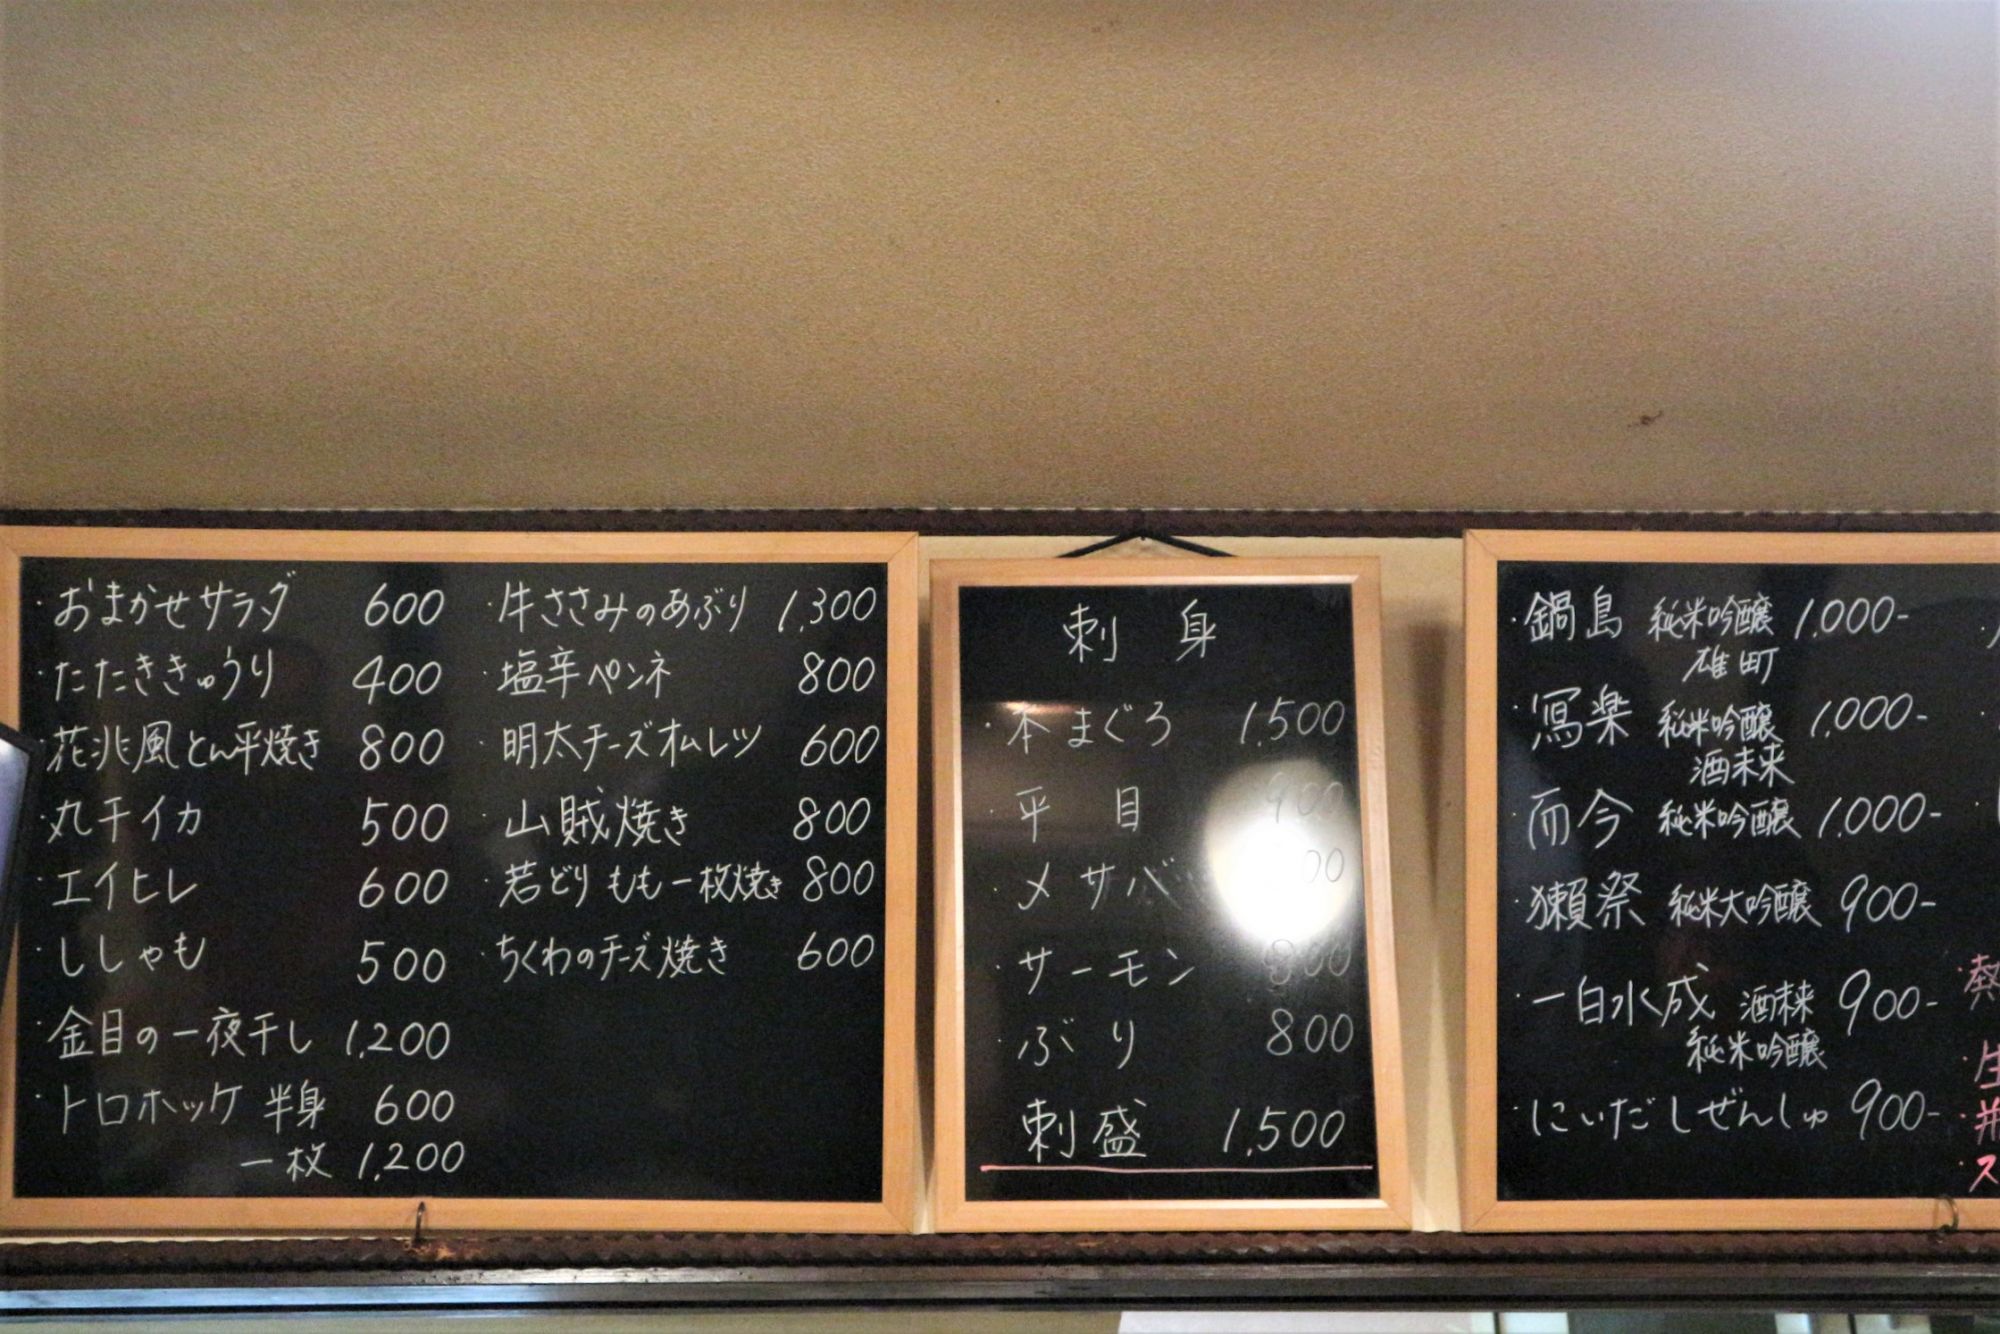 ・おまかせサラダ 600
・たたききゅうり 400
・花兆風とん平焼き 800
・丸干イカ 500
・エイヒレ 600
・ししゃも 500
・金目の一夜干し 1,200
・トロホッケ 半身 600
一枚 1,200
・牛ささみのあぶり 1,300
・塩辛ペンネ 800
・明太チーズオムレツ 600
・山賊焼き 800
・若どりもも一枚焼き 800
・ちくわのチーズ焼き 600
刺身
・本まぐろ 1,500
・平目 900
・〆サバ
・サーモン 800
・ぶり 800
刺盛 1,500
・鍋島 純米吟醸 1,000-
雄町
・冩楽 純米吟醸 1,000-
酒未来
・而今 純米吟醸 1,000-
・獺祭 純米大吟醸 900-
・一白水成 酒未来 900-
純米吟醸
・にいだしぜんしゅ 900-